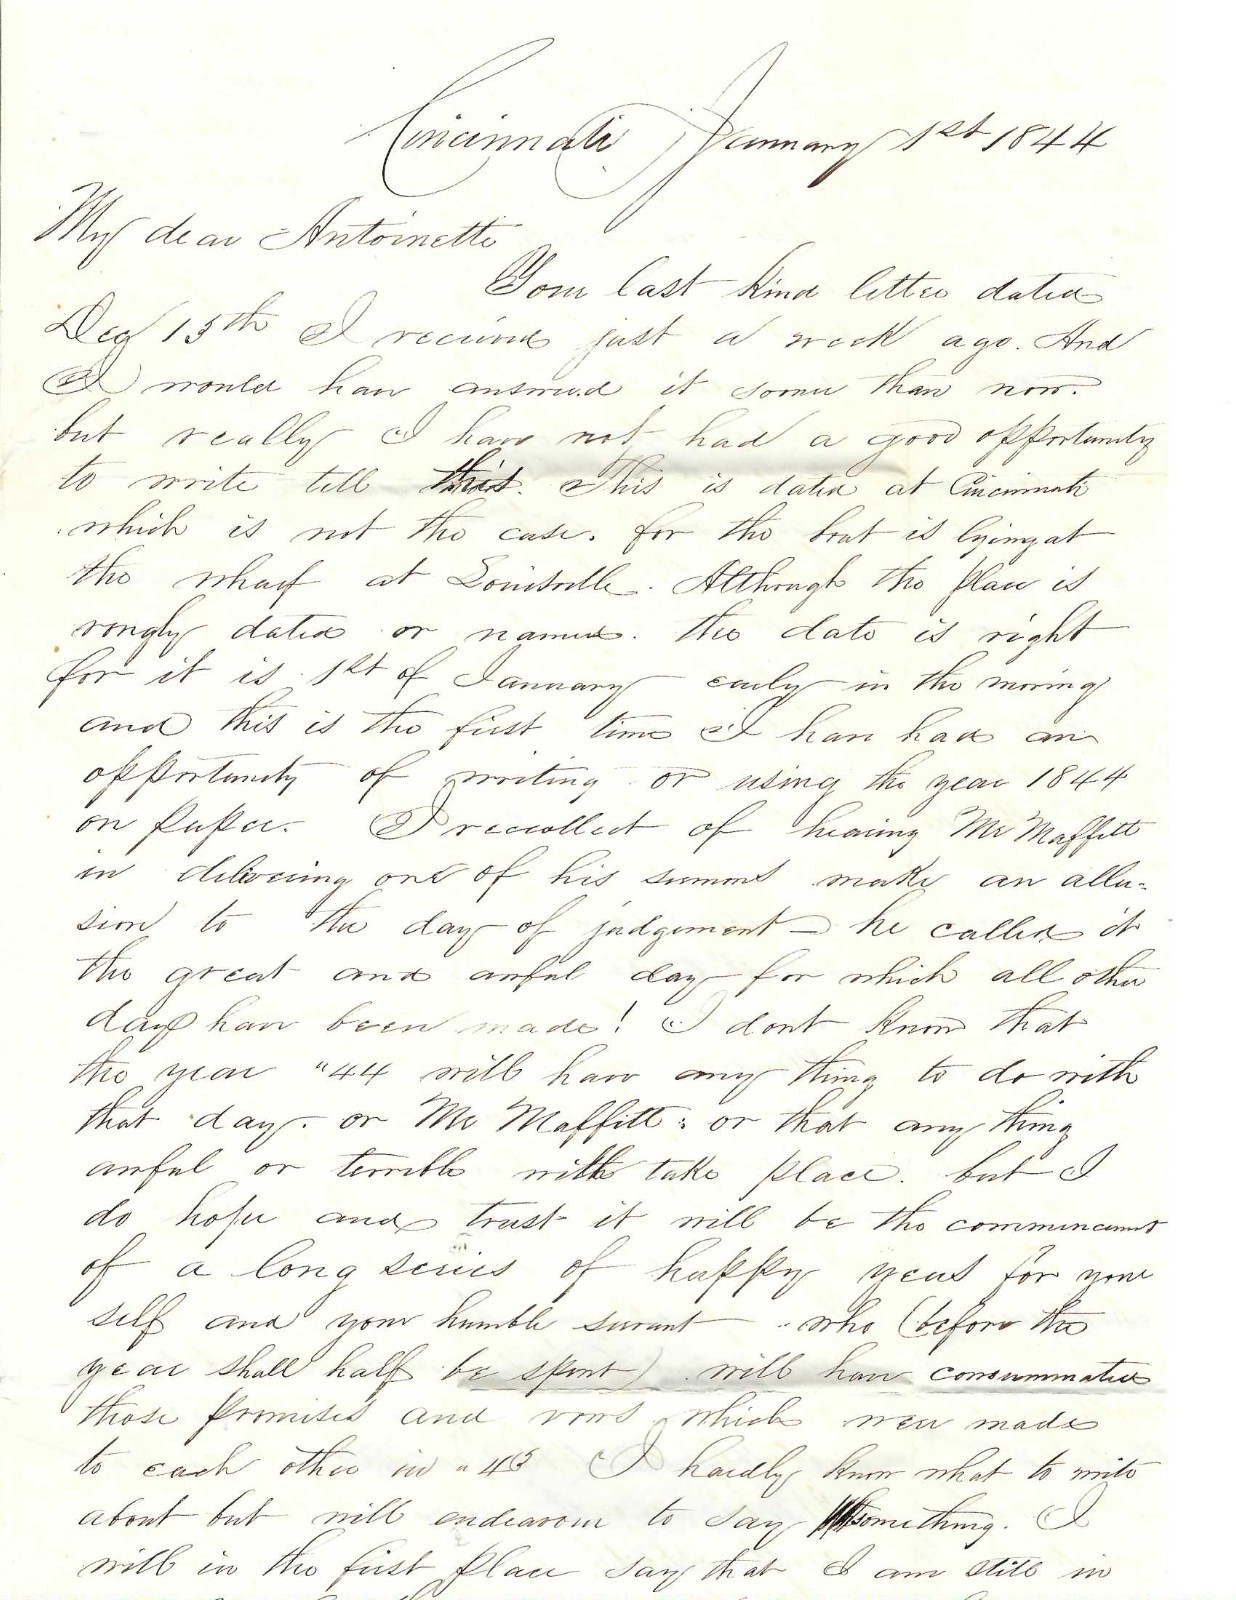 Cincinnati January 1st 1844
My dear Antoinette
Your last kind letter dated
Dec 15th I received just a week ago. And
I would have answered it sooner than now.
but really I have not had a good opportunity
to write till this. This is dated at Cincinnati
which is not the case. for the boat is lying at
the wharf at Louisville. Although the place is
rongly dated or named. the date is right
for it is 1st of January early in the morning
and this is the first time I have had an
opportunity of writing or using the year 1844
on paper. I reccollect of hearing Mr Maffitt
in delivering one of his sermons make an allu-
sion to the day of judgement he called it
the great and awful day for which all other
days have been made! I dont know that
the year "44 will have any thing to do with
that day. or Mr Maffitt; or that any thing
awful or terrible will take place. but I
do hope and trust it will be the commencement
of a long series of happy years for your
self and your humble servant who (before the
year shall half be spent) will have consummated
those promises and vows which were made
to each other in "43 I hardly know what to write
about but will endeavour to say something. I
will in the first place say that I am still in